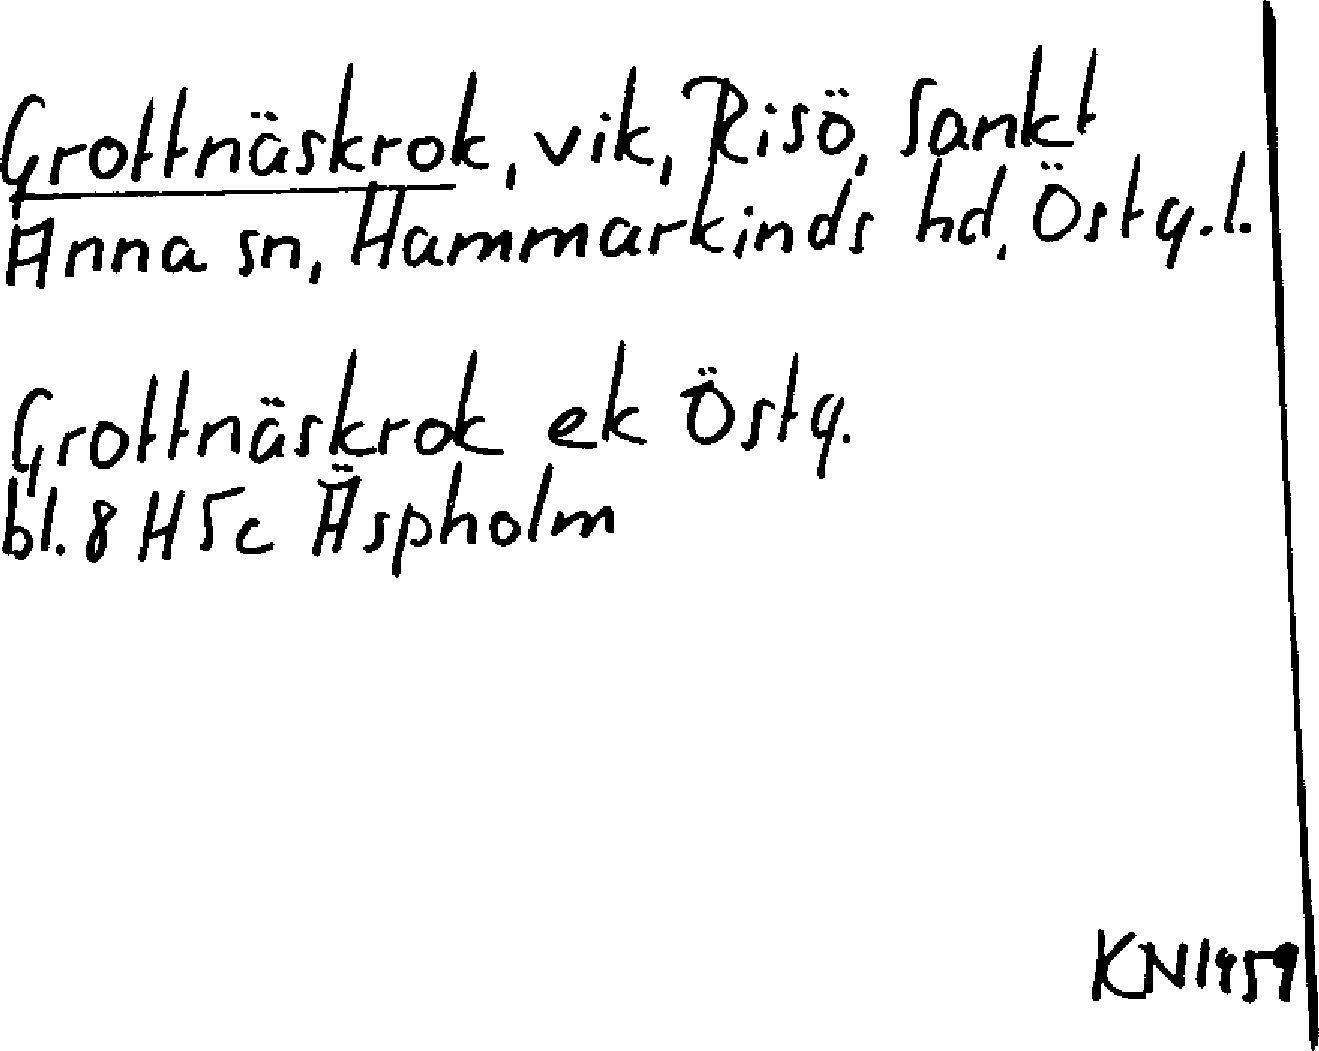 Grottnäskrok, vik, Risö, Sankt
Anna sn, Hammarkinds hd, Östg.l.
Grottnäskrok ek Östg.
bl. 8 H 5c Äspholm
KN 1959